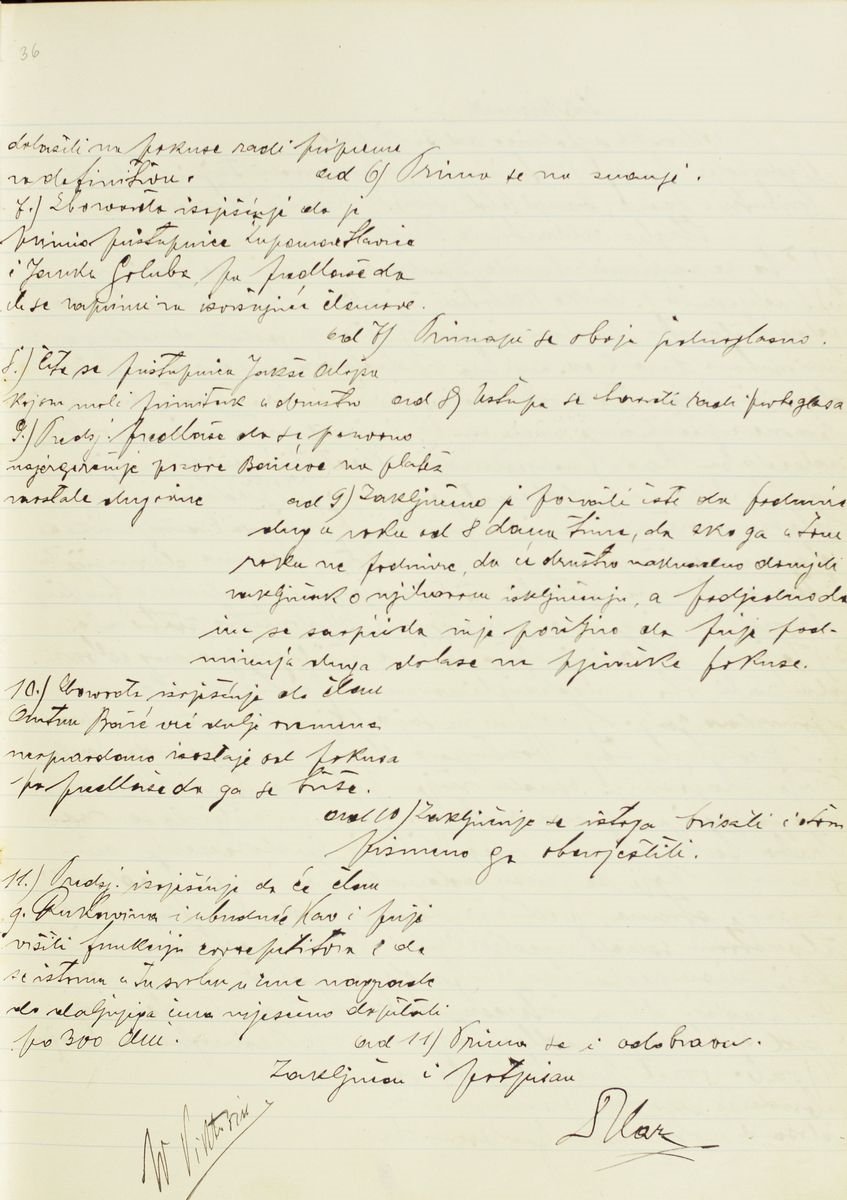 36
dolazili na pokuse radi pripreme
za definitivu. ad 6) Prima se na znanje.
7.) Zborovođa izvješćuje da je
primio pristupnice Zupana Slavice
i Janka Goluba pa predlaže da
ih se zaprimi za izvršujuće članove.
ad 7) Primaju se oboje jednoglasno.
8.) Čita se pristupnica Jakše Alojza
kojom moli primitak u društvo ad 8) Ustupa se zborovođi radi proboglasa
9.) Predsj. predlaže da se ponovno
najenergičnije pozove Baričeve na platež
zaostale dugovine ad 9) Zaključeno je pozvati iste da podmire
dug u roku od 8 dana time, da ako ga u tom
roku ne podmire, da će društvo naknadno donijeti
zaključak o njihovom isključenju, a podjedno da
im se saopći da nije poželjno da prije pod-
mirenja duga dolaze na pjevačke pokuse.
10.) Zborovođa izvješćuje da član
Antun Barić već dulje vremena
neopravdano izostaje od pokusa
pa predlaže da ga se briše.
ad 10) Zaključuje se istoga brisati i o tom
pismeno ga obavjestiti.
11.) Predsj. izvješćuje da će član
g. Rukavina i ubuduće kao i prije
vršiti funkciju korepetitora i da
se istomu u tu svrhu u ime nagrade
do daljnjega ima mjesečno doprinašati
po 300 din. ad 11) Prima se i odobrava.
Zaključen i potpisan